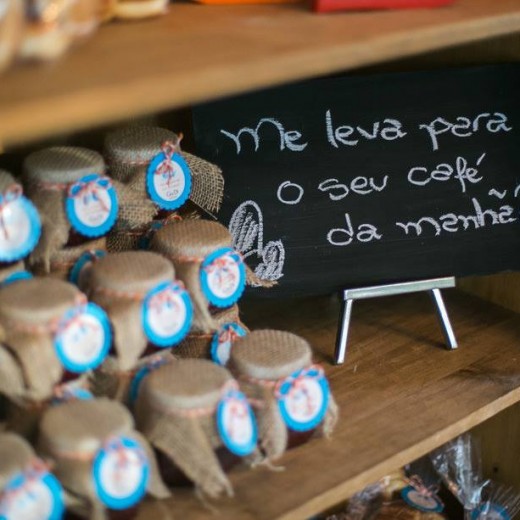 Me leva para
o seu café
da manhã